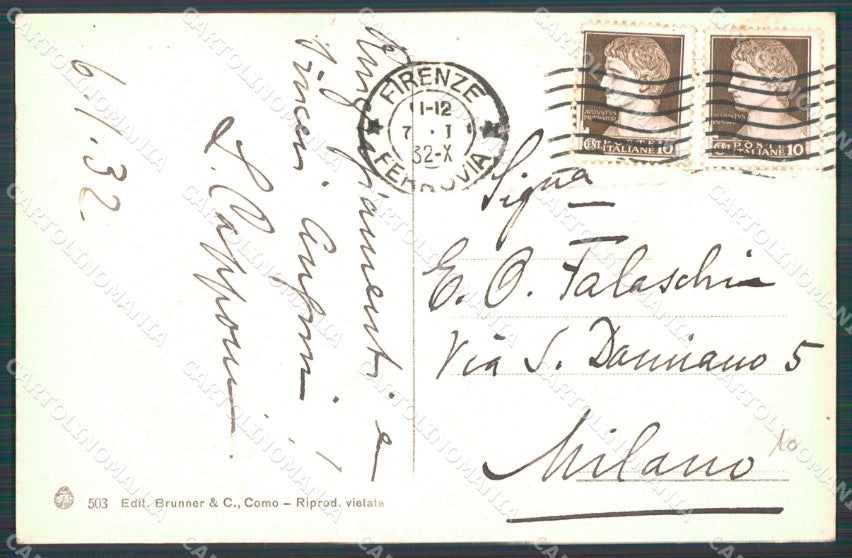 6.1.32
Ringraziamenti e
sinceri auguri!
L. Capponi
FIRENZE
11-12
7 . 1
32-X
FERROVIA
POSTE
CENT. ITALIANE 10
POSTE
CENT. ITALIANE 10
Signa
E. O. Falaschi
Via S. Damiano 5
Milano
10
503 Edit. Brunner & C., Como – Riprod. vietata
CARTOLINOMANIA